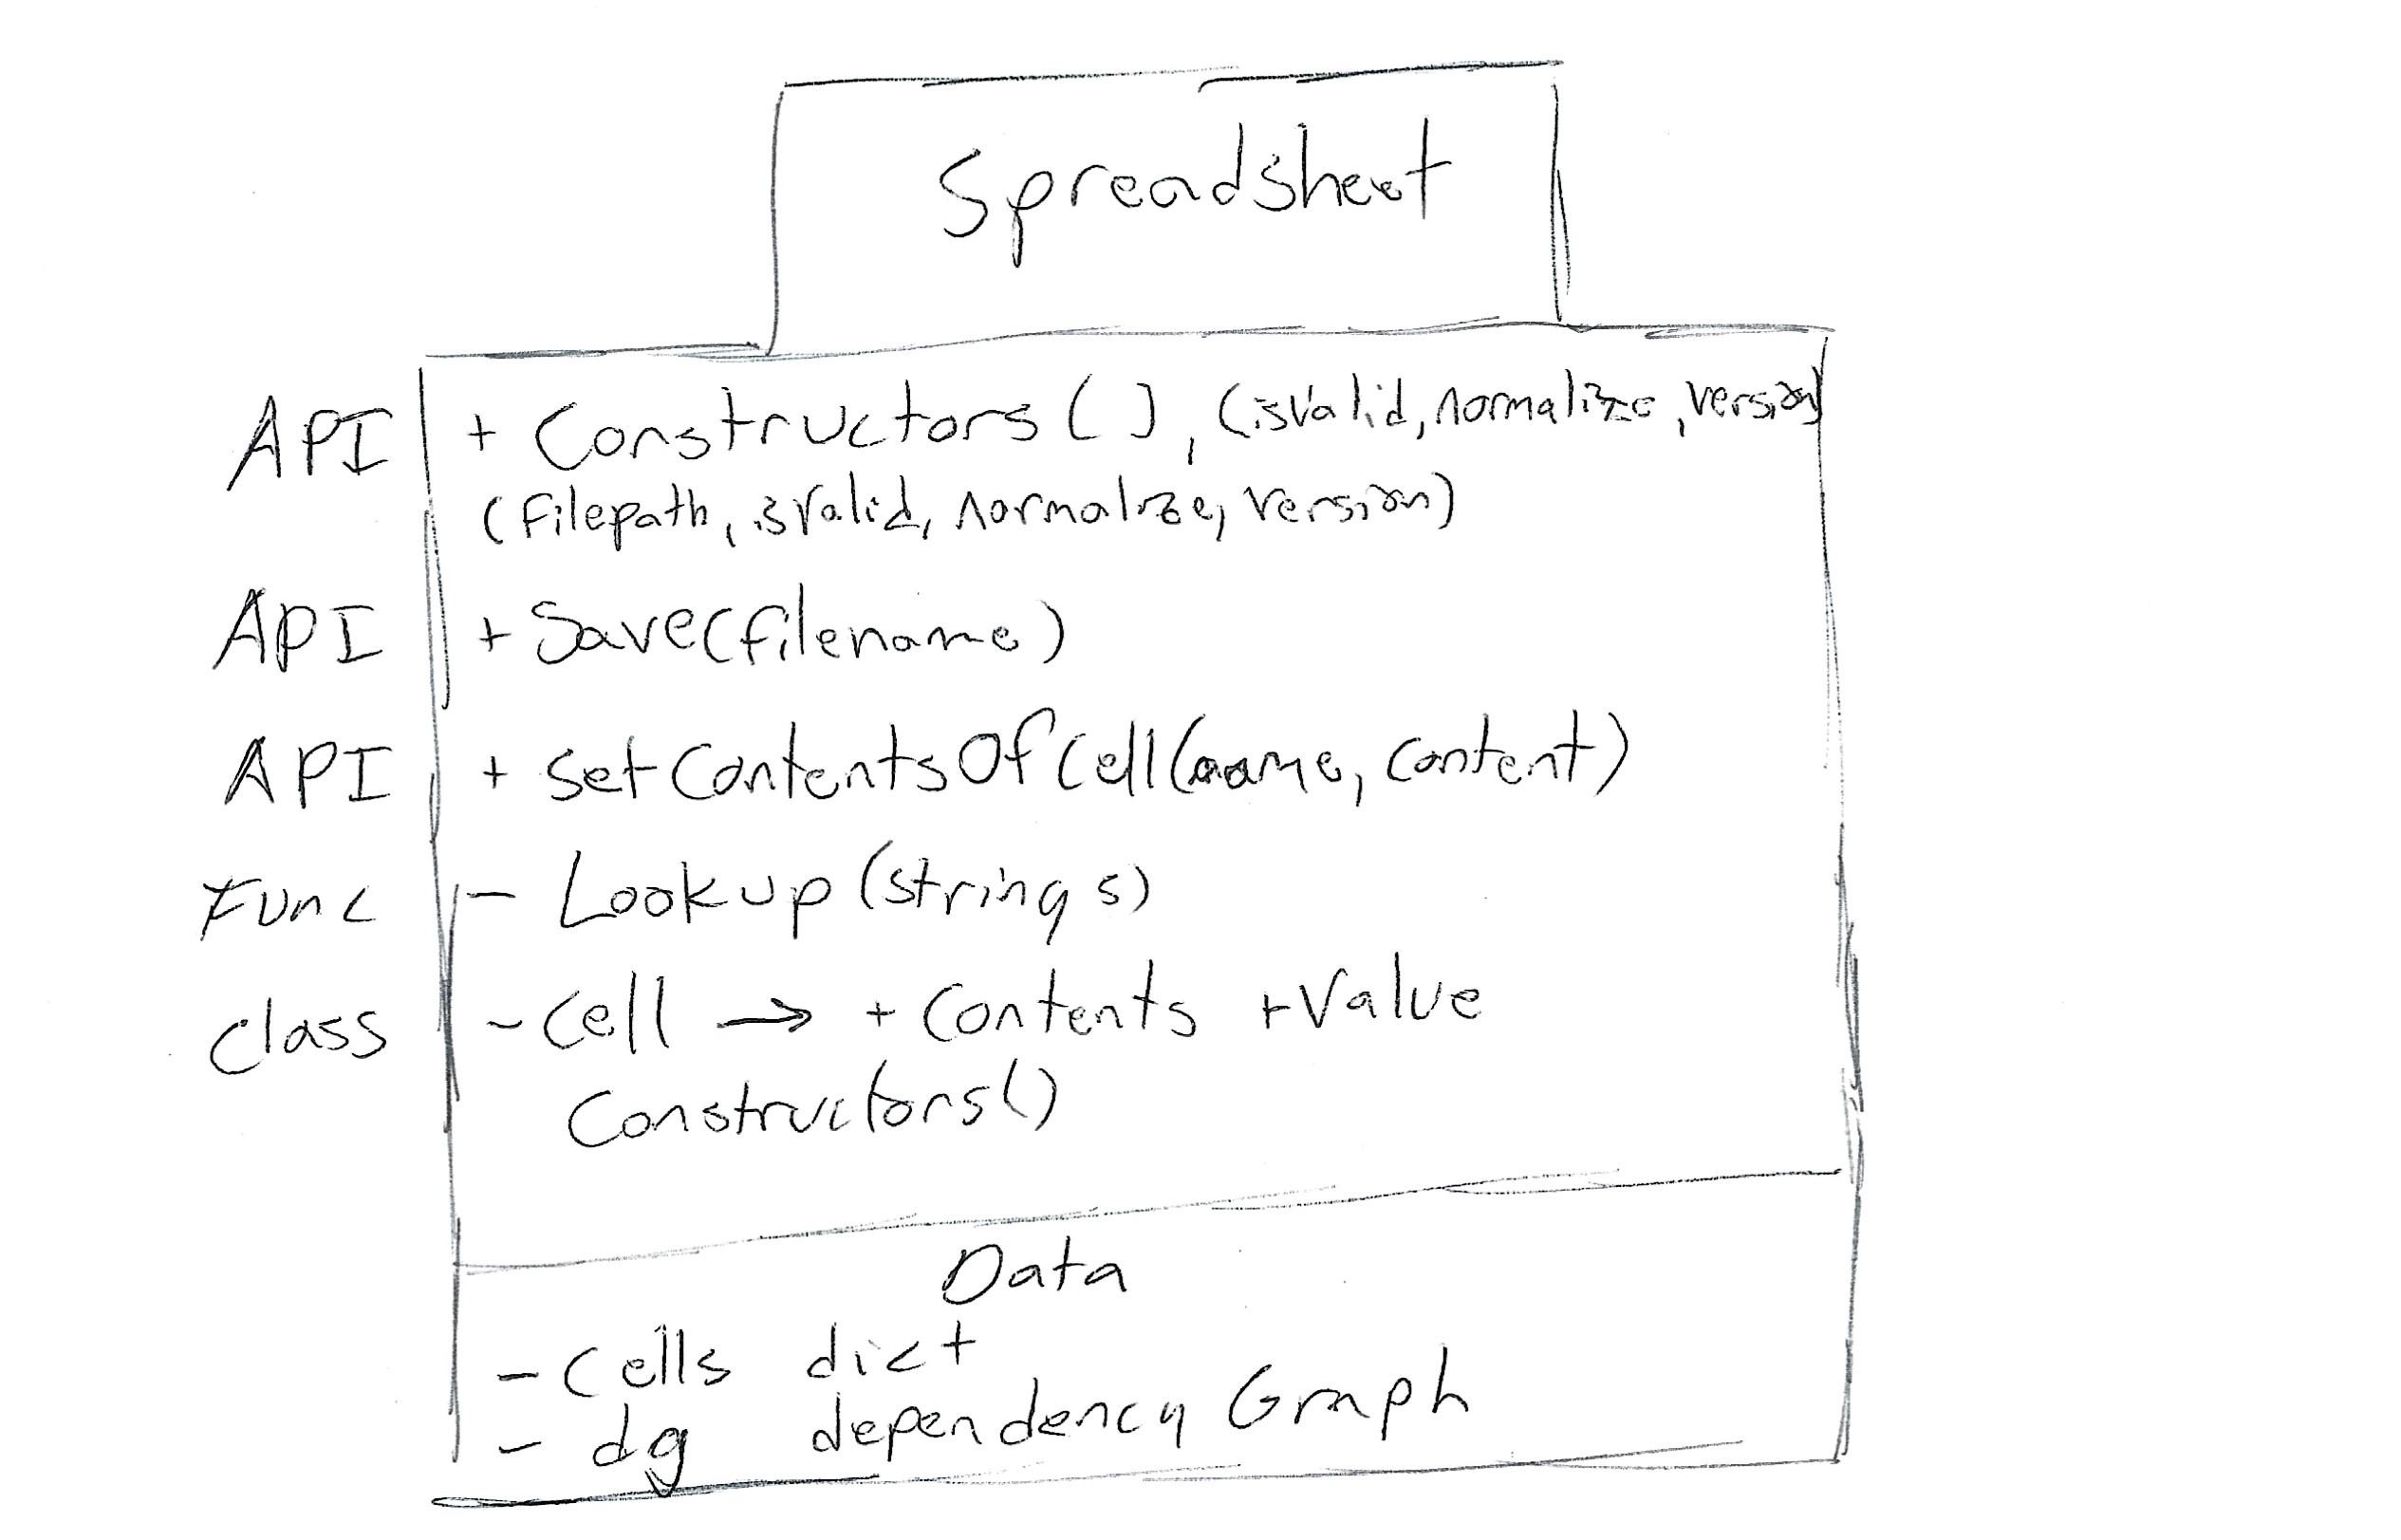 Spreadsheet
API + Constructors(), (isValid, normalize, version)
(filepath, isValid, normalize, version)
API + Save(filename)
API + setContentsOfCell(name, content)
Func - Lookup(string s)
class - Cell → + Contents + Value
Constructors()
Data
- Cells dict
- dg dependency Graph